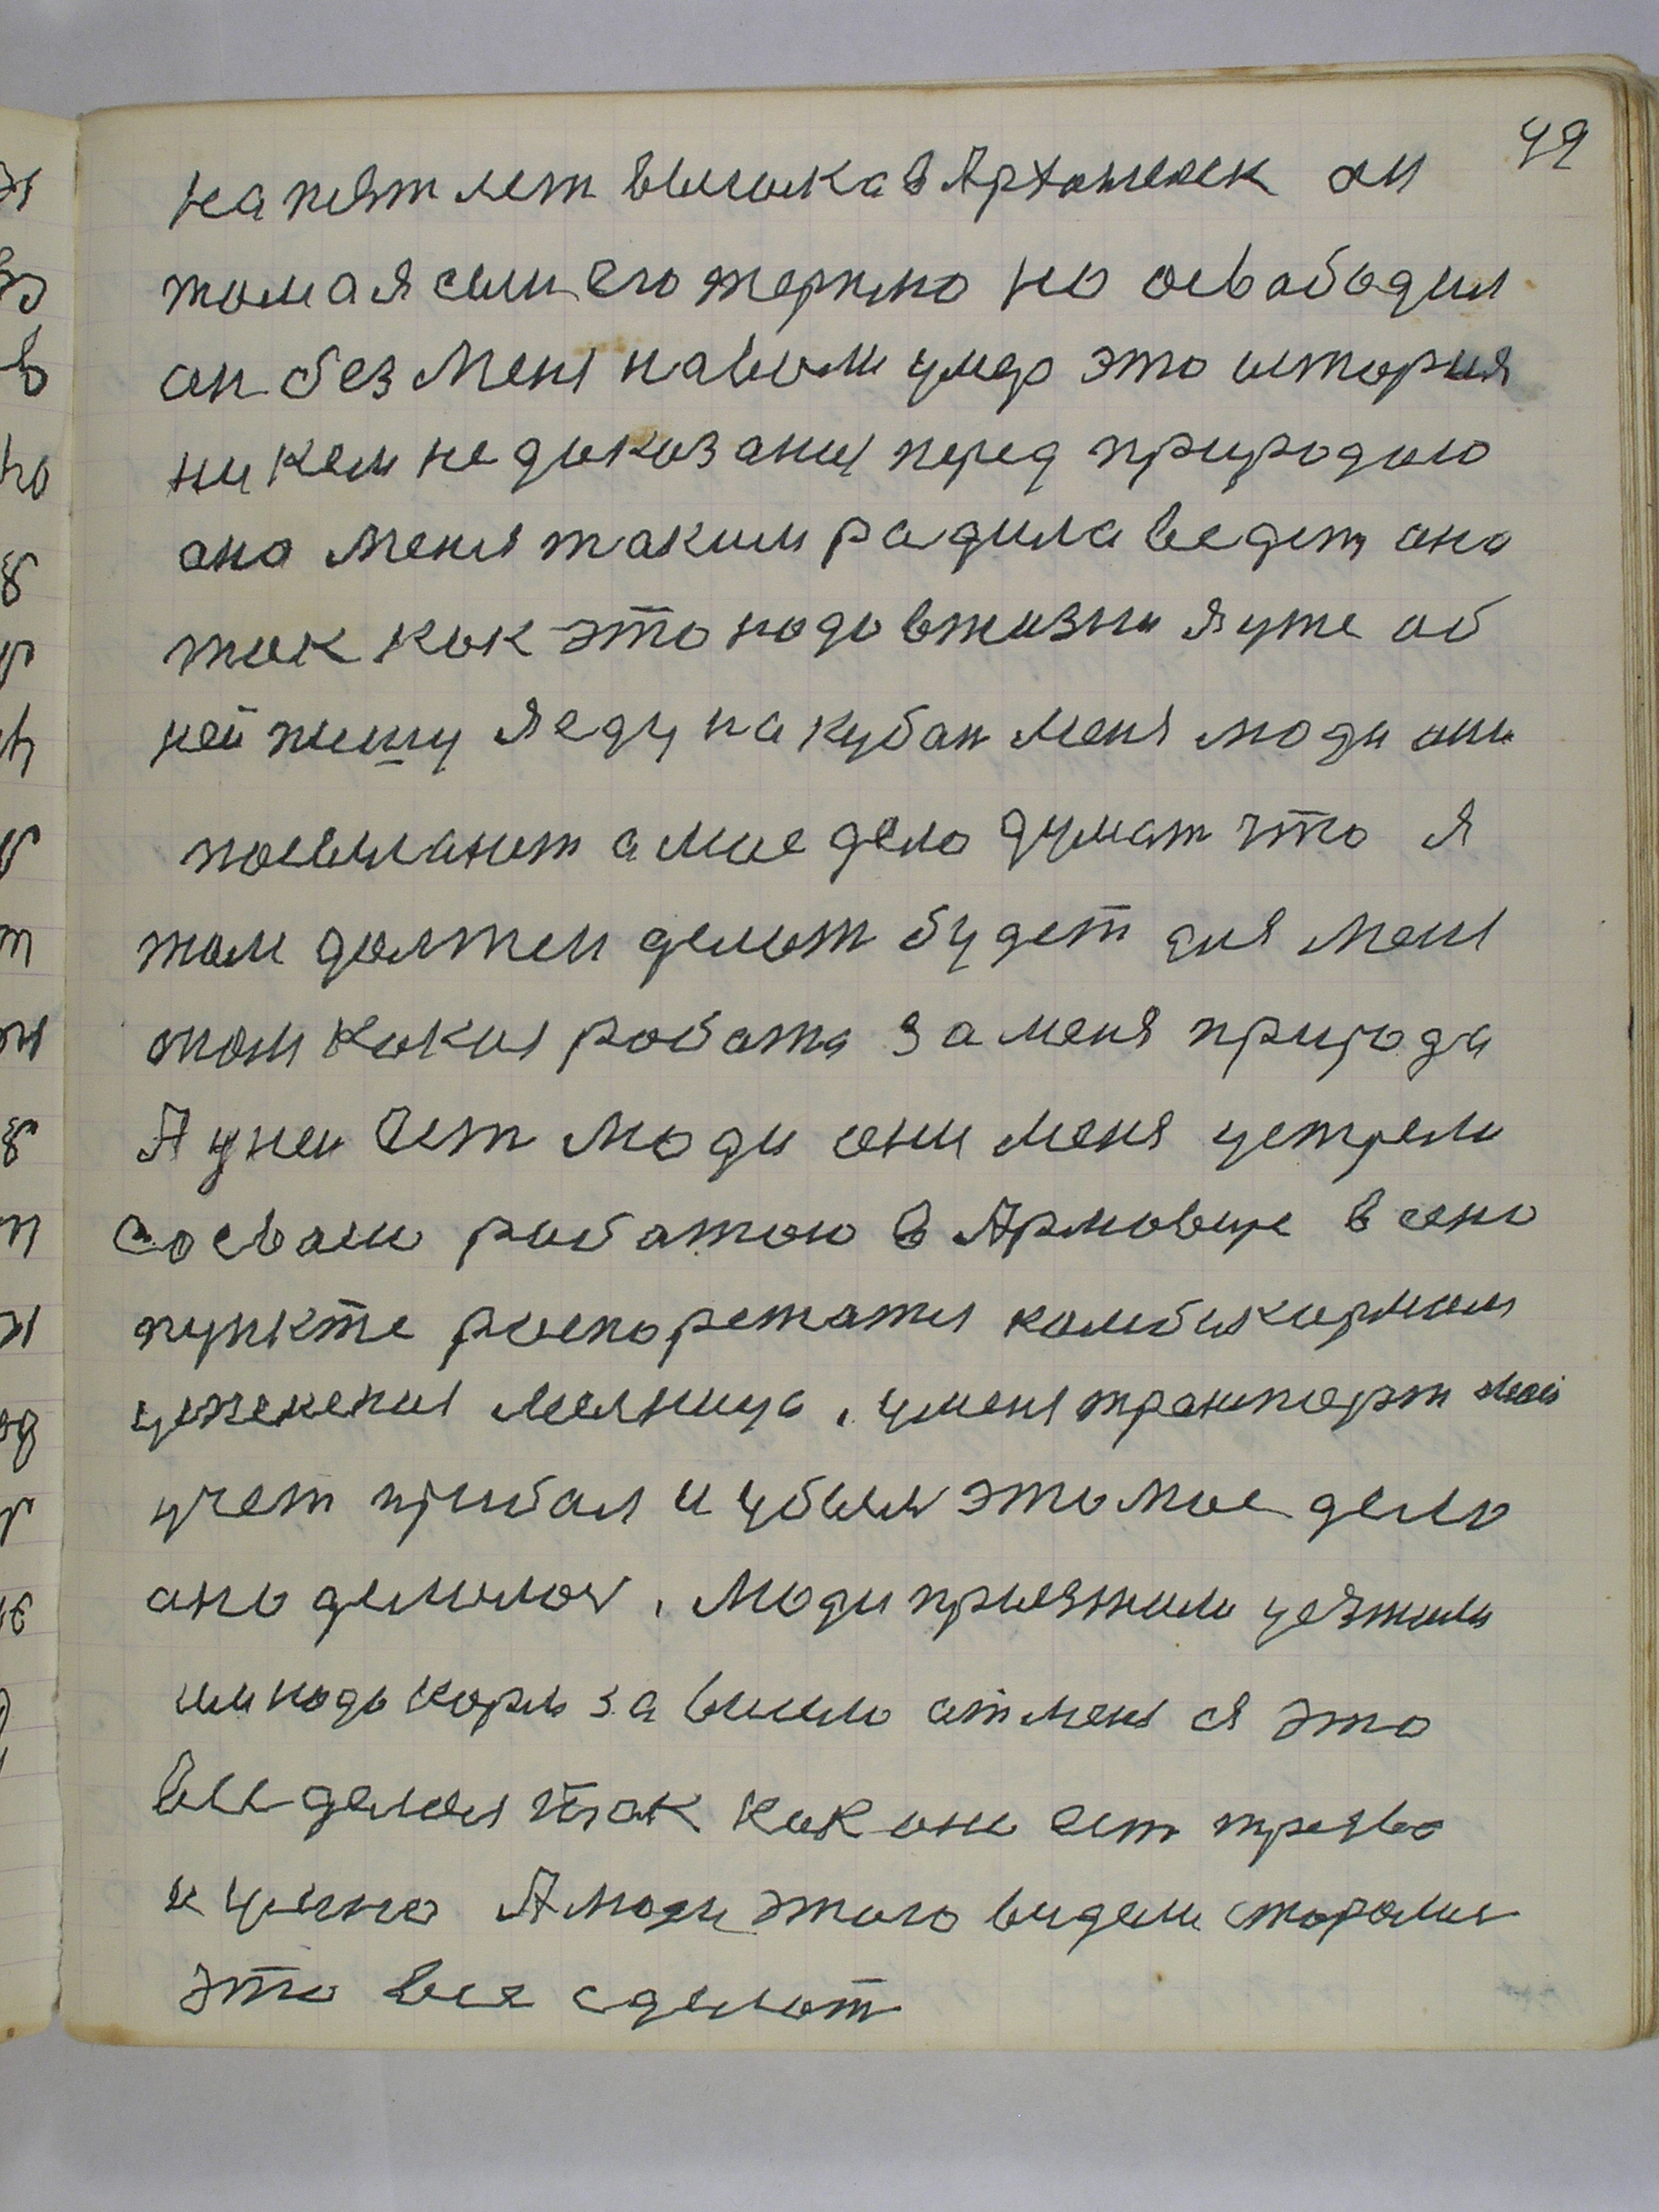 49
на пят лет высылка в Архангеск он
там а я сам его жертно но освабадил
он без меня на воли умер это история
ни кем не доказаных перед природою
она меня таким радила ведет она
так как это надо в жизни я уже об
ней пишу я еду на кубан меня люди они
посылают а мое дело думат что я
там должен делат будет для меня
там какая работа За меня природа
А у неи ест люди они меня устрели
со своею работою в Армовире в сено
пункте распоретатся комбикормам
мелница, у меня транпорт мой
учет прибыл и убыл это мое дело
оно делалос, люди приезжали уезжали
им надо корм зависило от меня я это
все делал так как оно ест трезво
и умно А люди этого видели старалис
это все сделат